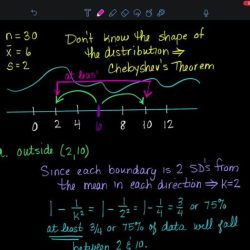 n = 30
x̄ = 6
s = 2
Don't know the shape of
the distribution ⇒
Chebyshev's Theorem
at least
0 2 4 6 8 10 12
a. outside (2,10)
Since each boundary is 2 SD's from
the mean in each direction ⇒ k=2
1 - 1/k² = 1 - 1/2² = 1 - 1/4 = 3/4 or 75%
at least 3/4 or 75% of data will fall
between 2 & 10.